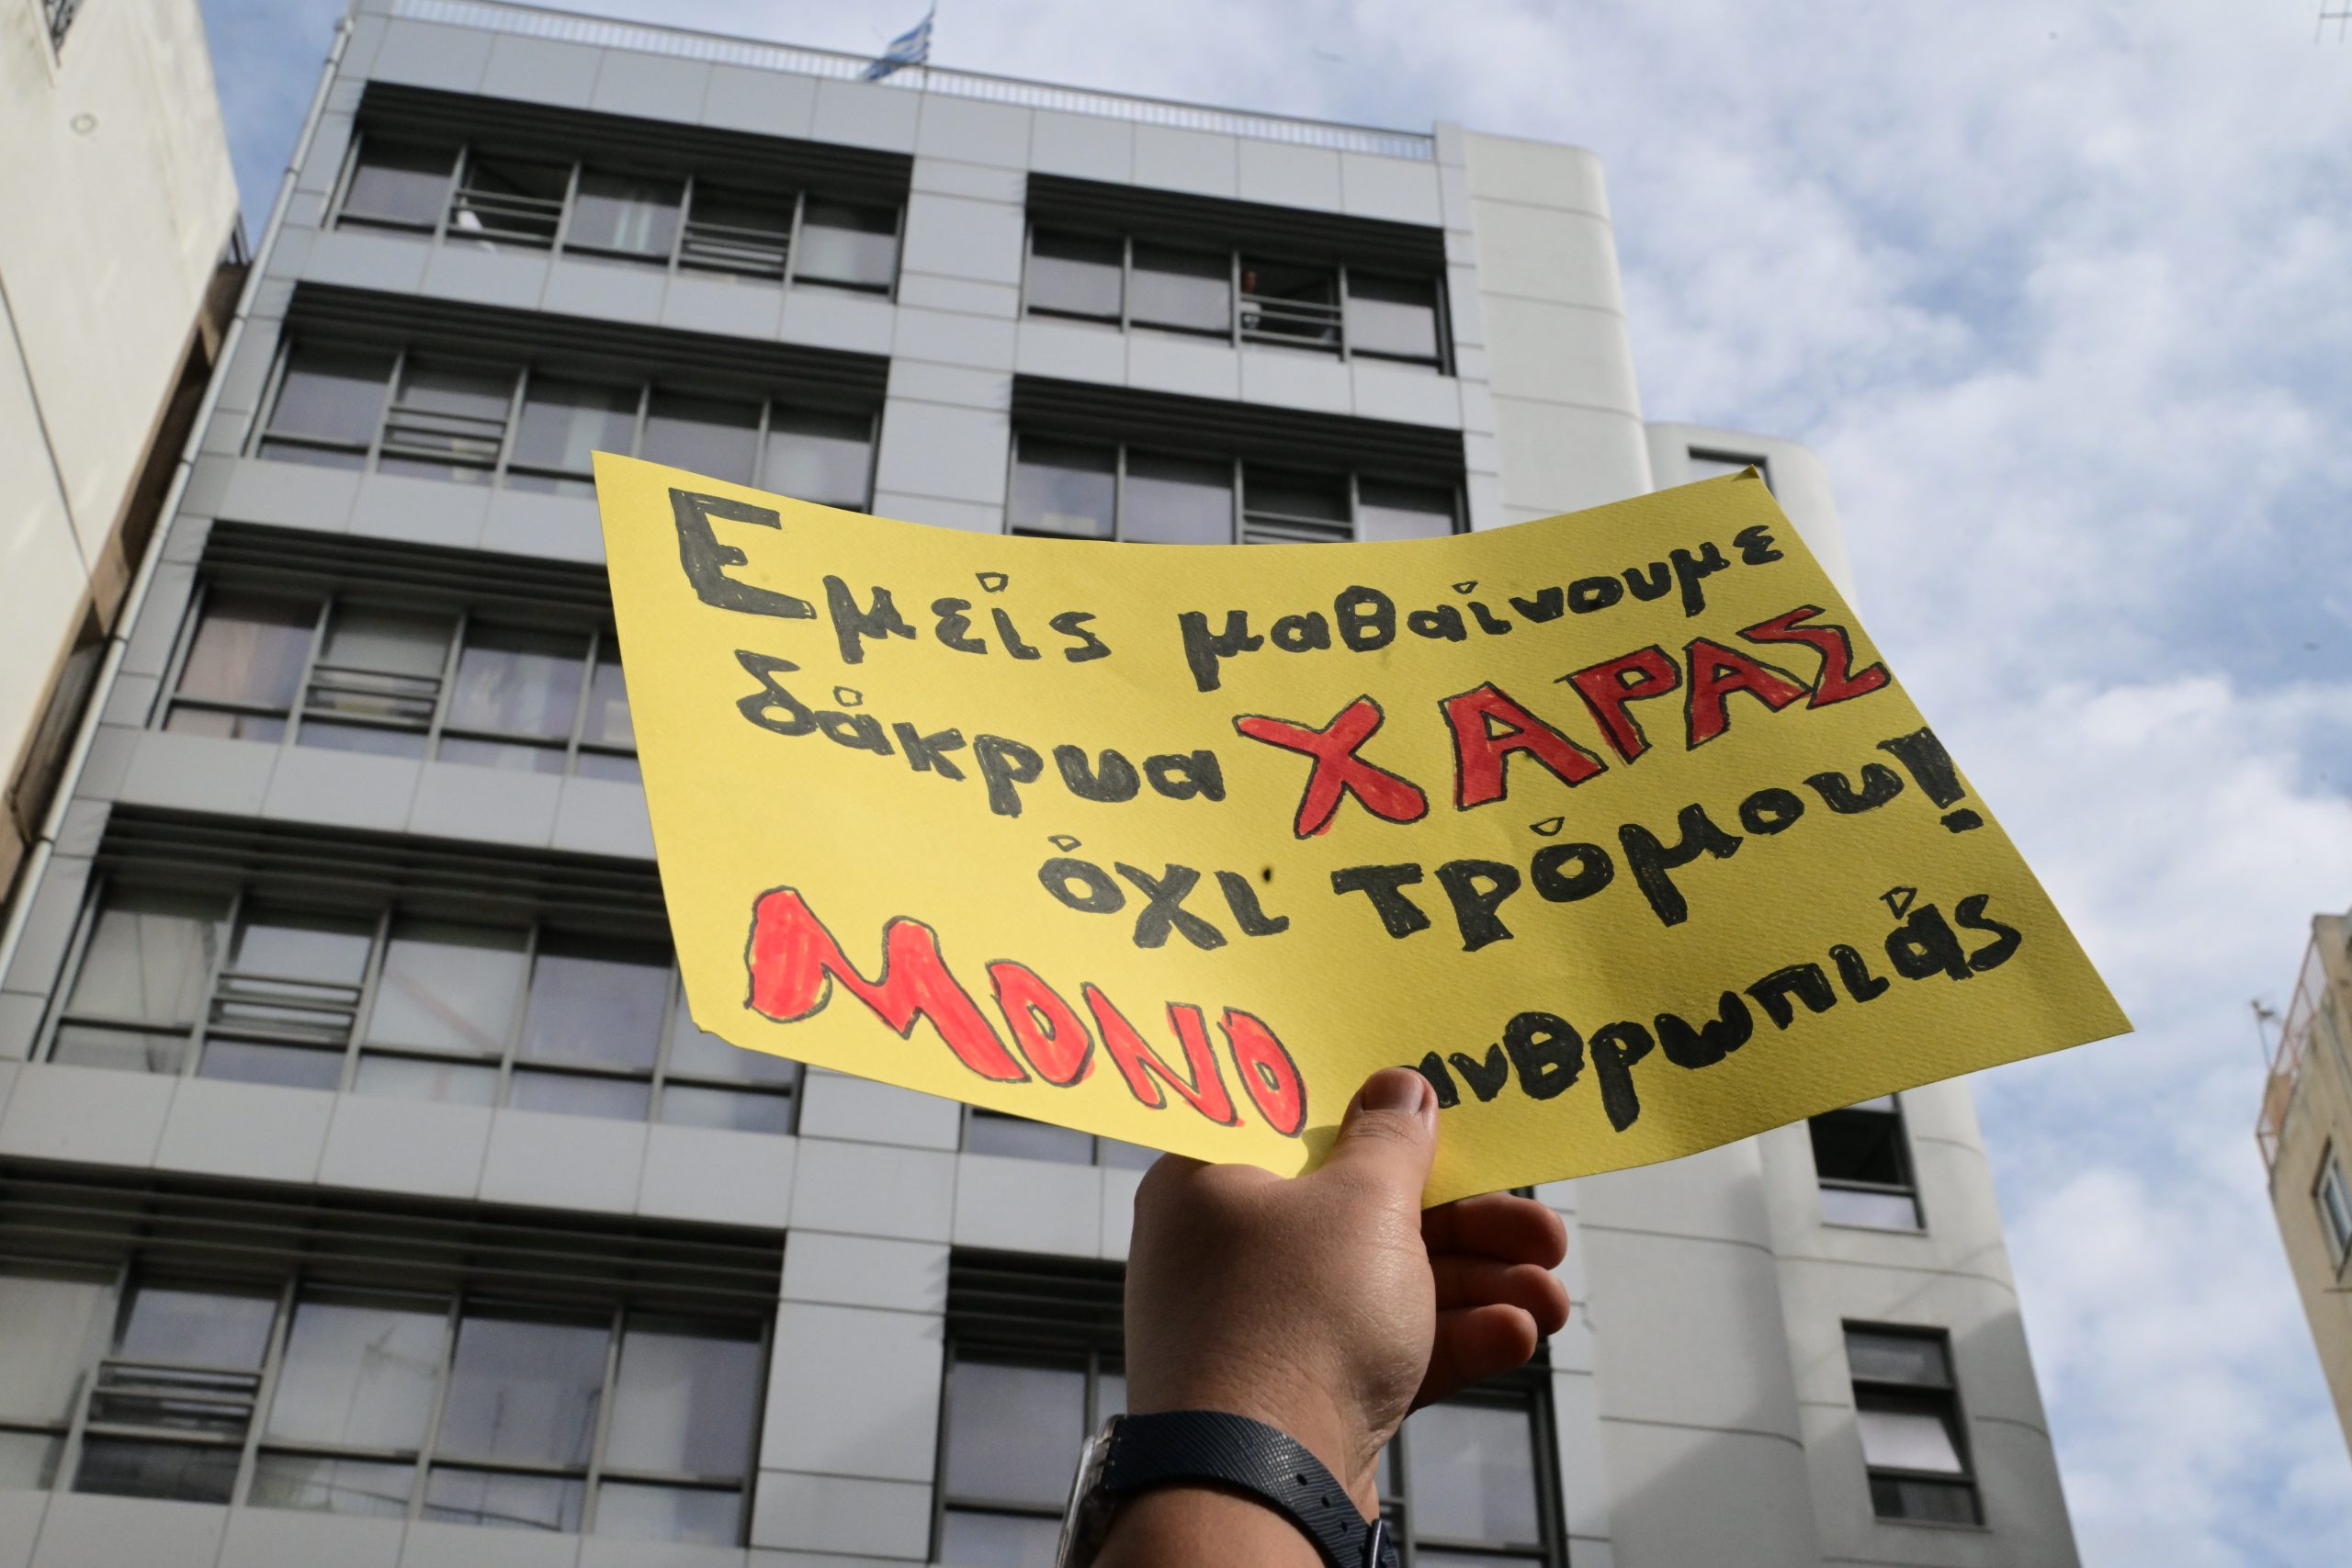 Εμείς μαθαίνουμε
δάκρυα ΧΑΡΑΣ
όχι τρόμου!
ΜΟΝΟ ανθρωπιάς